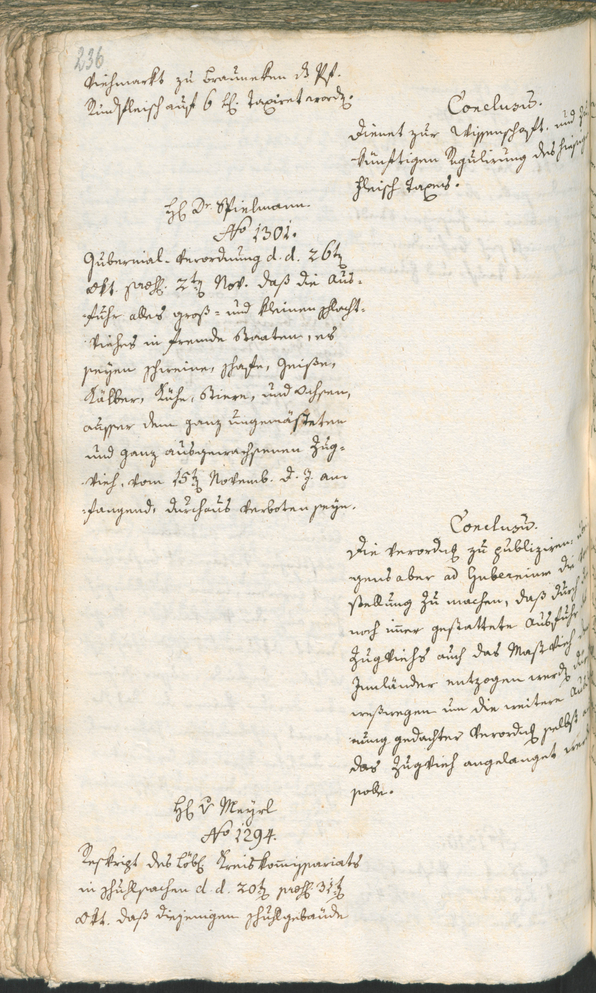 236
Viehmarkt zu Brauneken d. Pf.
Rindfleisch auf 6 kr. taxiret worden.
Conclusum.
Dienet zur Wissenschaft, und zu
künftigen Regulirung des hiesigen
Fleisch Taxes.
H. Dr. Spielmann.
No 1301.
Gubernial-Verordnung d. d. 26ten
Okt. praes. 2ten Nov. daß die Aus-
fuhr alles groß- und kleinen Schlacht-
viehes in fremde Staaten, es
seyen Schweine, Schafe, Geiße,
Kälber, Kühe, Stiere, und Ochsen,
ausser dem ganz ungemästeten
und ganz ausgewachsenen Zug-
vieh, vom 15ten Novemb. d. J. an-
fangend, durchaus verboten seye.
Conclusum.
Die Verordng zu publiziren,
gens aber ad Gubernium die
stellung zu machen, daß durch
noch immer gestattete Ausfuhr
Zugviehs auch das Mastvieh
Innländer entzogen werde,
weßwegen um die weitere
nung gedachter Verordng selbst
das Zugvieh angelanget
habe.
H. v. Meyrl
No 1294.
Reskript des löbl. Kreiskommissariats
in Schulsachen d. d. 20ten praes. 31ten
Okt. daß diejenigen Schulgebäude